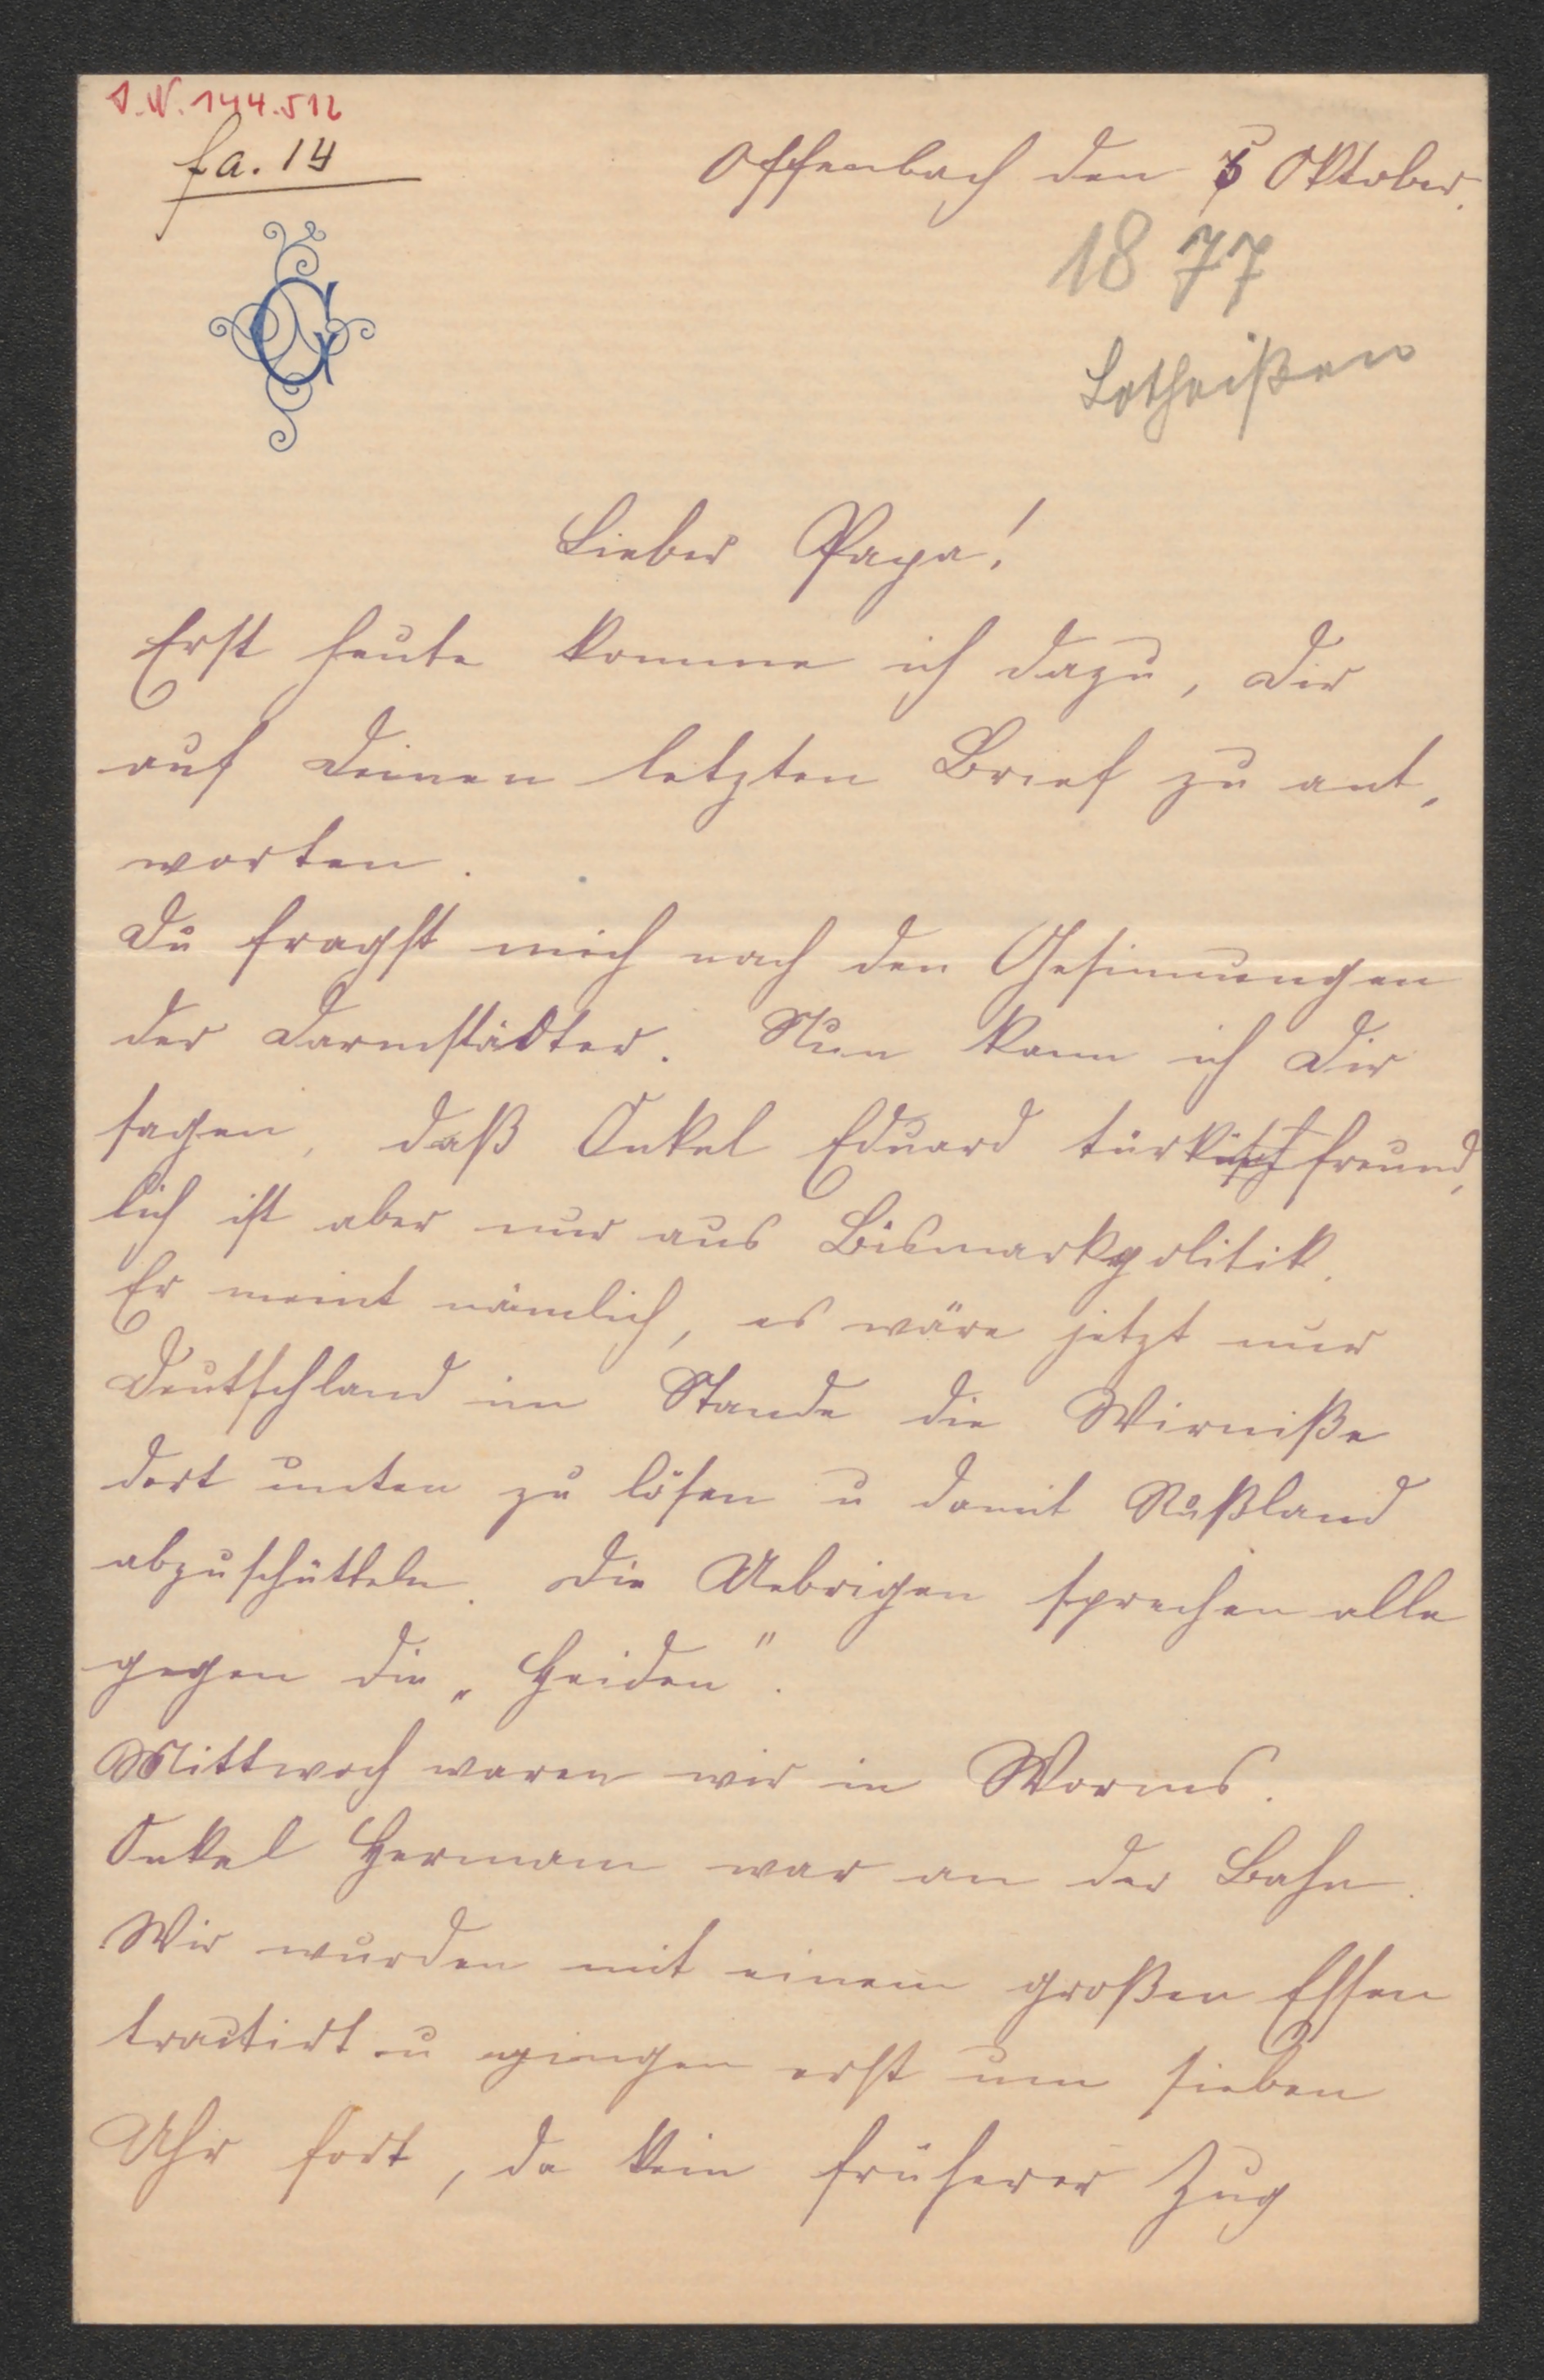 J.N. 144.512
fa. 14
Offenbach den 5 Oktober.
1877
Lotheißen
G
Lieber Papa!
Erst heute komme ich dazu, Dir
auf Deinen letzten Brief zu ant,
worten.
Du fragst mich nach den Gesinnungen
der Darmstädter. Nun kann ich Dir
sagen, daß Onkel Eduard türkisch freund,
lich ist aber nur aus Bismarkpolitik.
Er meint nämlich, es wäre jetzt nur
Deutschland im Stande die Wirniße
dort unten zu lösen u damit Rußland
abzuschütteln. Die Uebrigen sprechen alle
gegen die „Heiden".
Mittwoch waren wir in Worms.
Onkel Hermann war an der Bahn.
Wir wurden mit einem großen Essen
tractirt u gingen erst um sieben
Uhr fort, da kein früherer Zug